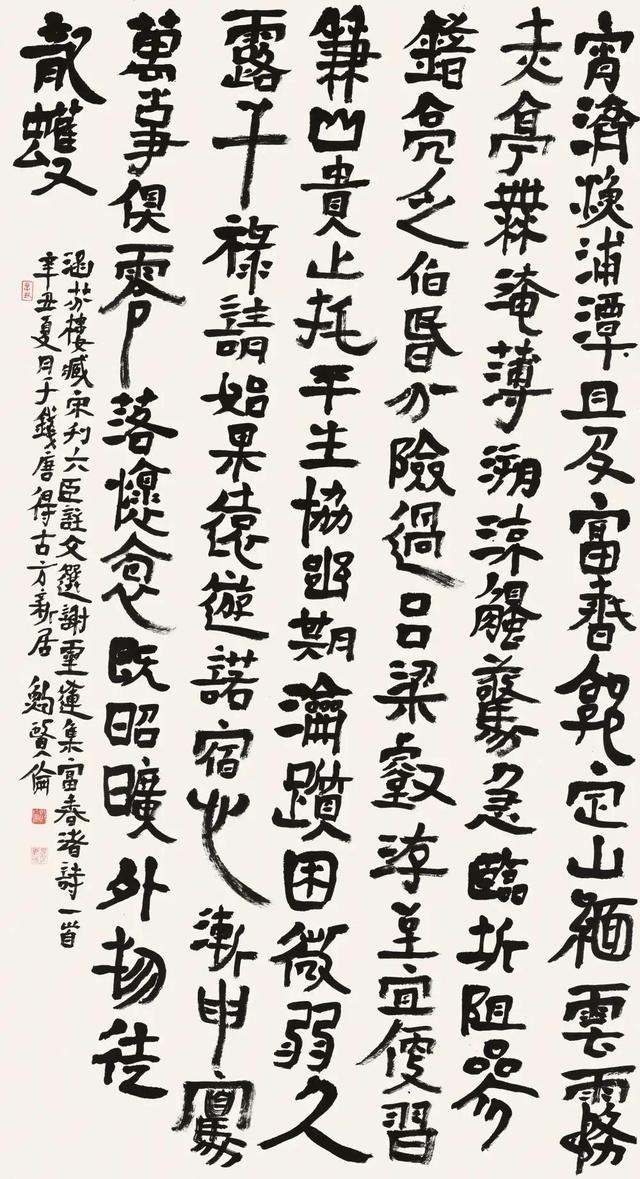 宵濟漁浦潭旦及富春郭定山緬雲霧
赤亭無淹薄溯流觸驚急臨圻阻參
錯亮乏伯昏分險過呂梁壑洊至宜便習
兼山貴止托平生協幽期淪躓困微弱久
露干祿請始果遠遊諾宿心漸申寫
萬事俱零落懷念既昭曠外物徒
龍蠖
涵芬樓藏宋刊六臣註文選謝靈運集富春渚詩一首
辛丑夏月于錢唐得古方新居 鮑賢倫